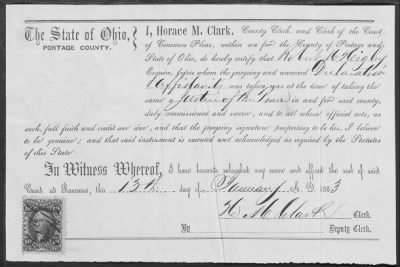 The State of Ohio,
PORTAGE COUNTY.
I, Horace M. Clark, County Clerk and Clerk of the Court
of Common Pleas, within and for the County of Portage and
State of Ohio, do hereby certify that
Esquire, before whom the foregoing and annexed Declaration
& Affidavits was taken, was at the time of taking the
same a Justice of the Peace in and for said county,
duly commissioned and sworn, and to all whose official acts, as
such, full faith and credit are due, and that the foregoing signature purporting to be his, I believe
to be genuine; and that said instrument is executed and acknowledged as required by the Statutes
of this State.
In Witness Whereof, I have hereunto subscribed my name and affixed the seal of said
Court at Ravenna, this 13th day of January A. D. 1863
H. M. Clark Clerk.
By Deputy Clerk.